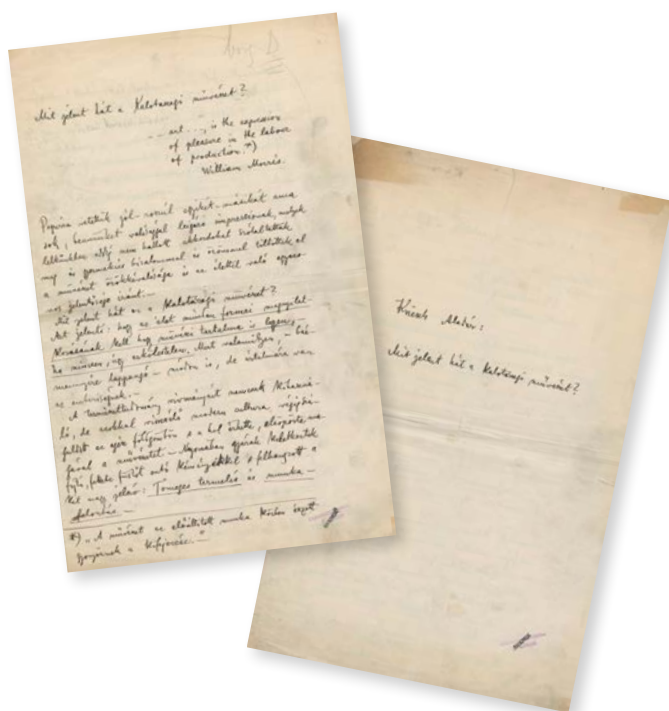 Mit jelent hát a Kalotaszegi művészet?
-- art ..., is the expression
of pleasure in the labour
of production. *)
William Morris.
Papirra vetettük jól-rosszul egyiket-másikát ama
sok, bennünket valósággal impressiónak, melyek
lelkünkben eddig nem hallott akkordokat szólaltattak
meg és gyermekies bizalommal és örömmel töltöttek el
a művészet örökkévalósága és az élettől való
jelentősége iránt.—
Mit jelent hát az a Kalotaszegi művészet?
Azt jelenti: hogy az élet minden formai megnyilat-
kozásának kell hogy művészi tartalma is legyen,
ha nincsen, úgy erkölcstelen. Mert valamilyen, – bár
mennyire lappangó – módon is, de ártalmára van
az emberiségnek.—
A természettudomány vívmányait nemcsak kihaszná-
ló, de azokkal visszaélő modern cultura
az egész földgömbön s a hol érhette, elsöpörte
jával a művészetet.— Nyomában gyárak keletkeztek
fojtó, fekete füstöt ontó kéményekkel s felhangzott a
két nagy jelszó: Tömeges termelés és munka-
felosztás.—
*) „A művészet az előállított munka közben érzett
gyönyörnek a kifejezése."
Körösfői Aladár:
Mit jelent hát a Kalotaszegi művészet?